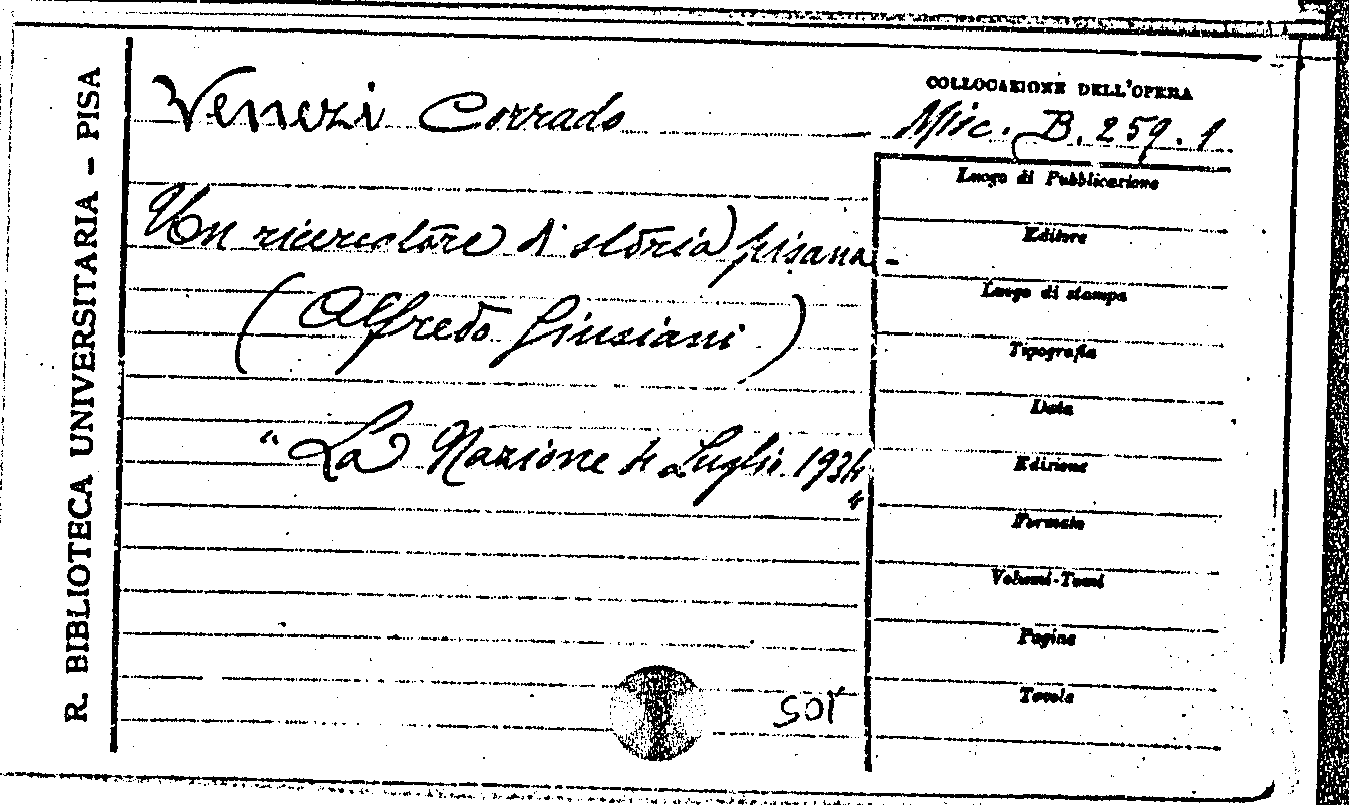 R. BIBLIOTECA UNIVERSITARIA - PISA
Venezi Corrado
COLLOCAZIONE DELL'OPERA
Misc. B. 259. 1
Un ricercatore di storia pisana -
(Alfredo Giusiani)
"La Nazione 4 Luglio 1934"
Luogo di Pubblicazione
Editore
Luogo di stampa
Tipografia
Data
Edizione
Formato
Volumi-Tomi
Pagine
Tavole